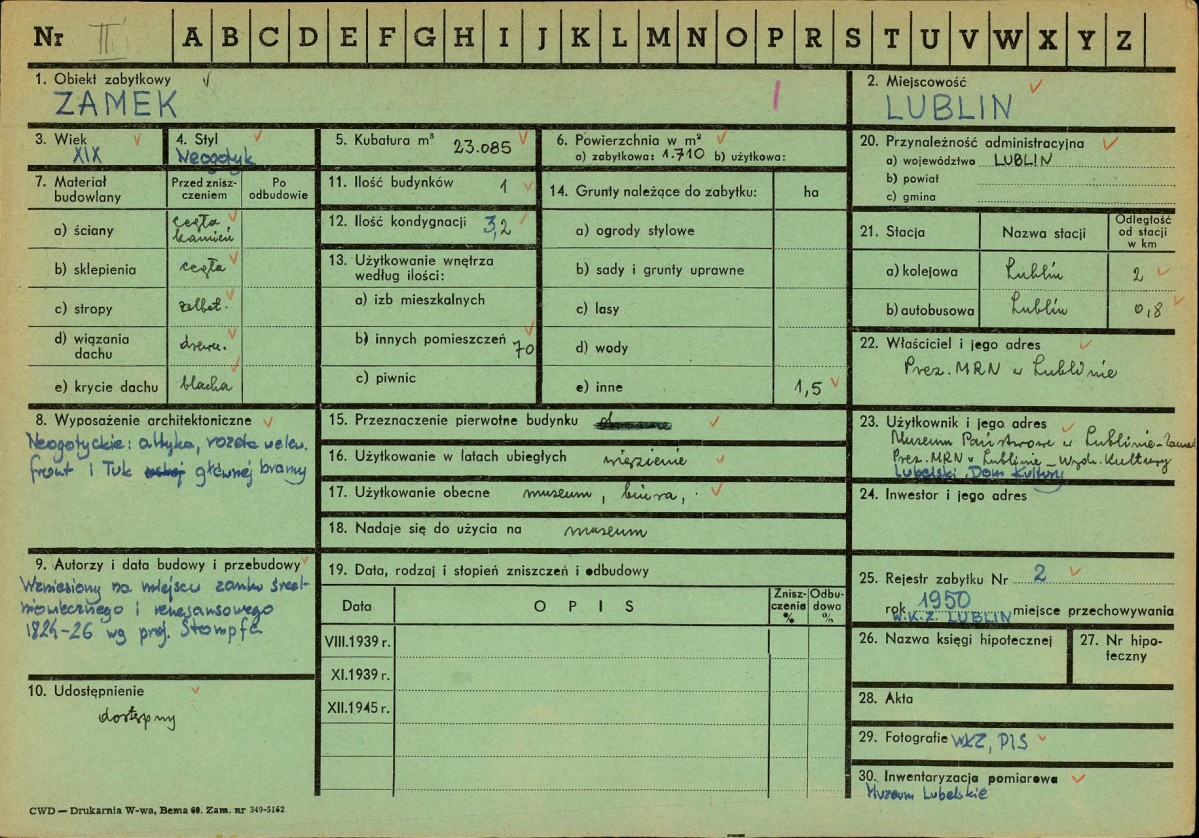 Nr III A B C D E F G H I J K L M N O P R S T U V W X Y Z
1. Obiekt zabytkowy
ZAMEK
2. Miejscowość
LUBLIN
3. Wiek
XIX
4. Styl
Neogotyk
5. Kubatura m³ 23.085
6. Powierzchnia w m²
a) zabytkowa: 1.710 b) użytkowa:
20. Przynależność administracyjna
a) województwo LUBLIN
b) powiat
c) gmina
7. Materiał budowlany
Przed zniszczeniem
Po odbudowie
a) ściany cegła kamień
b) sklepienia cegła
c) stropy żelbet.
d) wiązania dachu drewn.
e) krycie dachu blacha
11. Ilość budynków 1
12. Ilość kondygnacji 3,2
13. Użytkowanie wnętrza
według ilości:
a) izb mieszkalnych
b) innych pomieszczeń 70
c) piwnic
14. Grunty należące do zabytku: ha
a) ogrody stylowe
b) sady i grunty uprawne
c) lasy
d) wody
e) inne 1,5
21. Stacja Nazwa stacji Odległość od stacji w km
a) kolejowa Lublin 2
b) autobusowa Lublin 0,8
22. Właściciel i jego adres
Prez. MRN w Lublinie
8. Wyposażenie architektoniczne
Neogotyckie: attyka, rozeta
front i łuk głównej bramy
15. Przeznaczenie pierwotne budynku
16. Użytkowanie w latach ubiegłych więzienie
17. Użytkowanie obecne museum, biura,
18. Nadaje się do użycia na museum
23. Użytkownik i jego adres
Museum Państwowe w Lublinie - Zamek
Prez. MRN w Lublinie - Wydz. Kultury
Lubelski Dom Kultury
24. Inwestor i jego adres
9. Autorzy i data budowy i przebudowy
Wzniesiony na miejscu zamku śred-
niowiecznego i renesansowego
1824-26 wg proj. Stompfa
10. Udostępnienie
dostępny
19. Data, rodzaj i stopień zniszczeń i odbudowy
Data OPIS Zniszczenia % Odbudowa %
VIII.1939 r.
XI.1939 r.
XII.1945 r.
25. Rejestr zabytku Nr 2
rok 1950 miejsce przechowywania
W.K.Z. LUBLIN
26. Nazwa księgi hipotecznej
27. Nr hipoteczny
28. Akta
29. Fotografie WKZ, PIS
30. Inwentaryzacja pomiarowa
Muzeum Lubelskie
CWD — Drukarnia W-wa, Bema 60. Zam. nr 349-5162